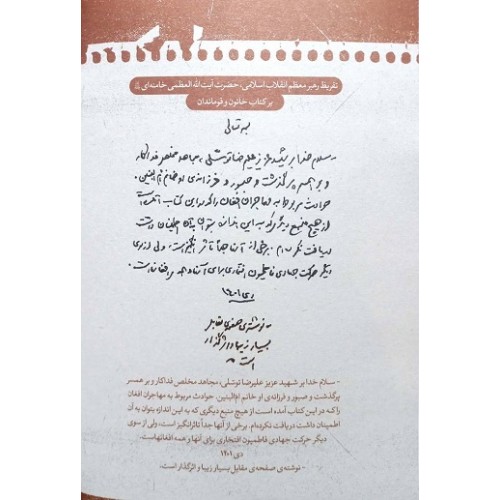 تقریظ رهبر معظم انقلاب اسلامی، حضرت آیت‌الله العظمی خامنه‌ای
بر کتاب خاتون و قوماندان
بسمه تعالی
- سلام خدا بر شهید عزیز علیرضا توسلی، مجاهد مخلص فداکار
و بر همسر پرگذشت و صبور و فرزانه‌ی او خانم ام‌البنین.
حوادث مربوط به مهاجران افغان را که در این کتاب آمده است
از هیچ منبع دیگری که به این اندازه بتوان به آن اطمینان داشت
دریافت نکرده‌ام. برخی از آنها جداً تأثرانگیز است، ولی از سوی
دیگر حرکت جهادی فاطمیون افتخاری برای آنها و همه افغانهاست.
دی ۱۴۰۱
- نوشته‌ی صفحه‌ی مقابل
بسیار زیبا و اثرگذار
است
- سلام خدا بر شهید عزیز علیرضا توسلی، مجاهد مخلص فداکار و بر همسر
پرگذشت و صبور و فرزانه‌ی او خانم ام‌البنین. حوادث مربوط به مهاجران افغان
را که در این کتاب آمده است از هیچ منبع دیگری که به این اندازه بتوان به آن
اطمینان داشت دریافت نکرده‌ام. برخی از آنها جداً تأثرانگیز است، ولی از سوی
دیگر حرکت جهادی فاطمیون افتخاری برای آنها و همه افغانهاست.
دی ۱۴۰۱
- نوشته‌ی صفحه‌ی مقابل بسیار زیبا و اثرگذار است.